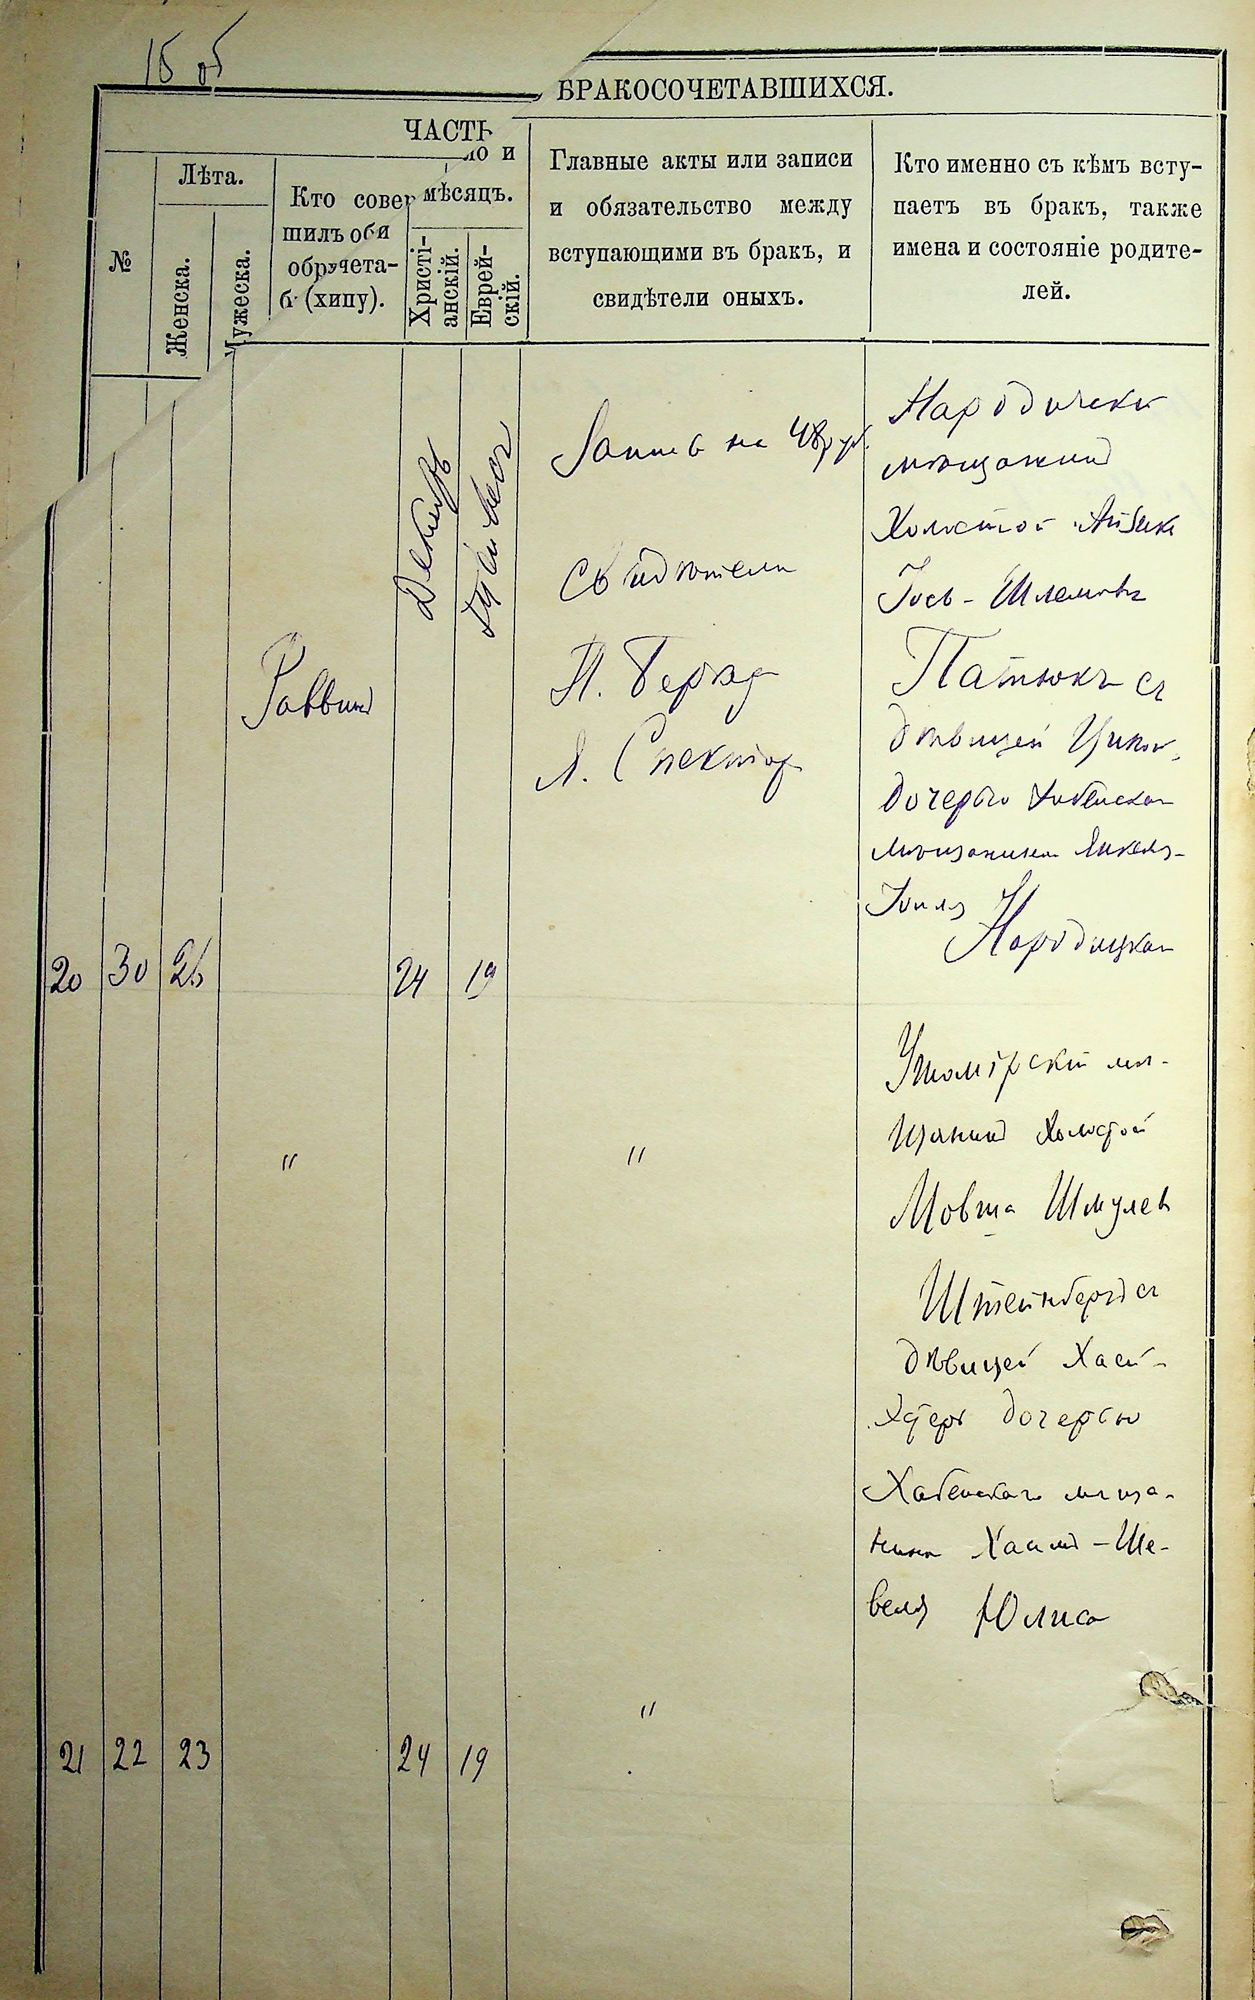 15 об
БРАКОСОЧЕТАВШИХСЯ.
ЧАСТЬ
№
Лѣта.
Женска.
Мужеска.
Кто совер
шилъ об и
обручета-
б (хипу).
ло и
мѣсяцъ.
Христі-
анскій.
Еврей-
скій.
Главные акты или записи
и обязательство между
вступающими въ бракъ, и
свидѣтели оныхъ.
Кто именно съ кѣмъ всту-
паетъ въ бракъ, также
имена и состояніе родите-
лей.
20
30
26
Раввинъ
Декабрь
24
19
Запись на 48 руб.
Свидѣтели
Я. Спекторъ
Народическій
мѣщанинъ
Холостой Айзикъ
Іось-Шлемовъ
Патюкъ съ
дѣвицей
дочерью Хабенскаго
мѣщанина Янкель-
Іоиля
Народицкаго
21
22
23
"
24
19
"
"
Ушомірскій мѣ-
щанинъ Холостой
Мовша Шмулевъ
Штейнбергъ съ
дѣвицей Хаей-
Эстеръ дочерью
Хабенскаго мѣща-
нина Хаимъ-Ше-
веля Юлиса